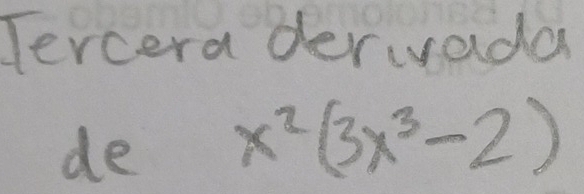 Tercera derivada
de x²(3x³-2)